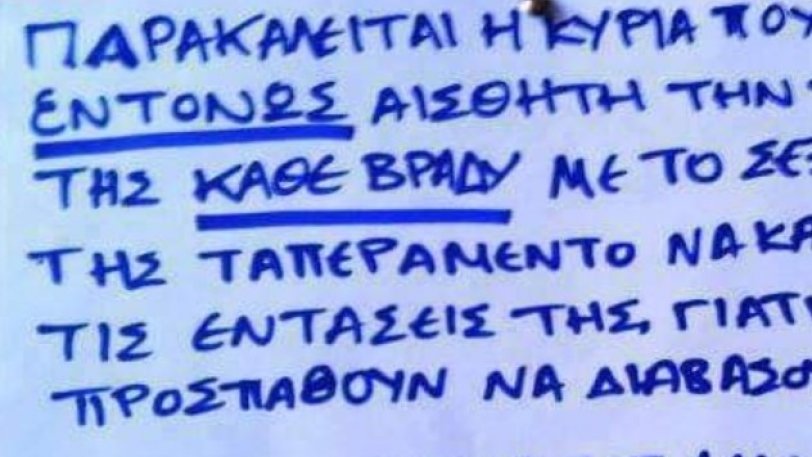 ΠΑΡΑΚΑΛΕΙΤΑΙ Η ΚΥΡΙΑ ΠΟΥ
ΕΝΤΟΝΩΣ ΑΙΣΘΗΤΗ ΤΗΝ
ΤΗΣ ΚΑΘΕ ΒΡΑΔΥ ΜΕ ΤΟ
ΤΗΣ ΤΑΠΕΡΑΜΕΝΤΟ ΝΑ
ΤΙΣ ΕΝΤΑΣΕΙΣ ΤΗΣ, ΓΙΑΤ
ΠΡΟΣΠΑΘΟΥΝ ΝΑ ΔΙΑΒΑΣΟ